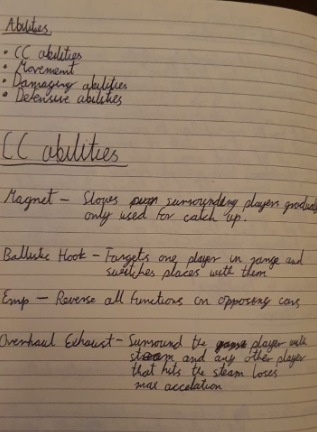 Abilities
• CC abilities
• Movement
• Damaging abilities
• Defensive abilities
CC abilities
Magnet - Slows surrounding players
only used for catch up.
Ballistic Hook - Targets one player in range and
switches places with them
Emp - Reverse all functions on opposing cars
Overhaul Exhaust - Surround the player with
steam and any other player
that hits the steam loses
max